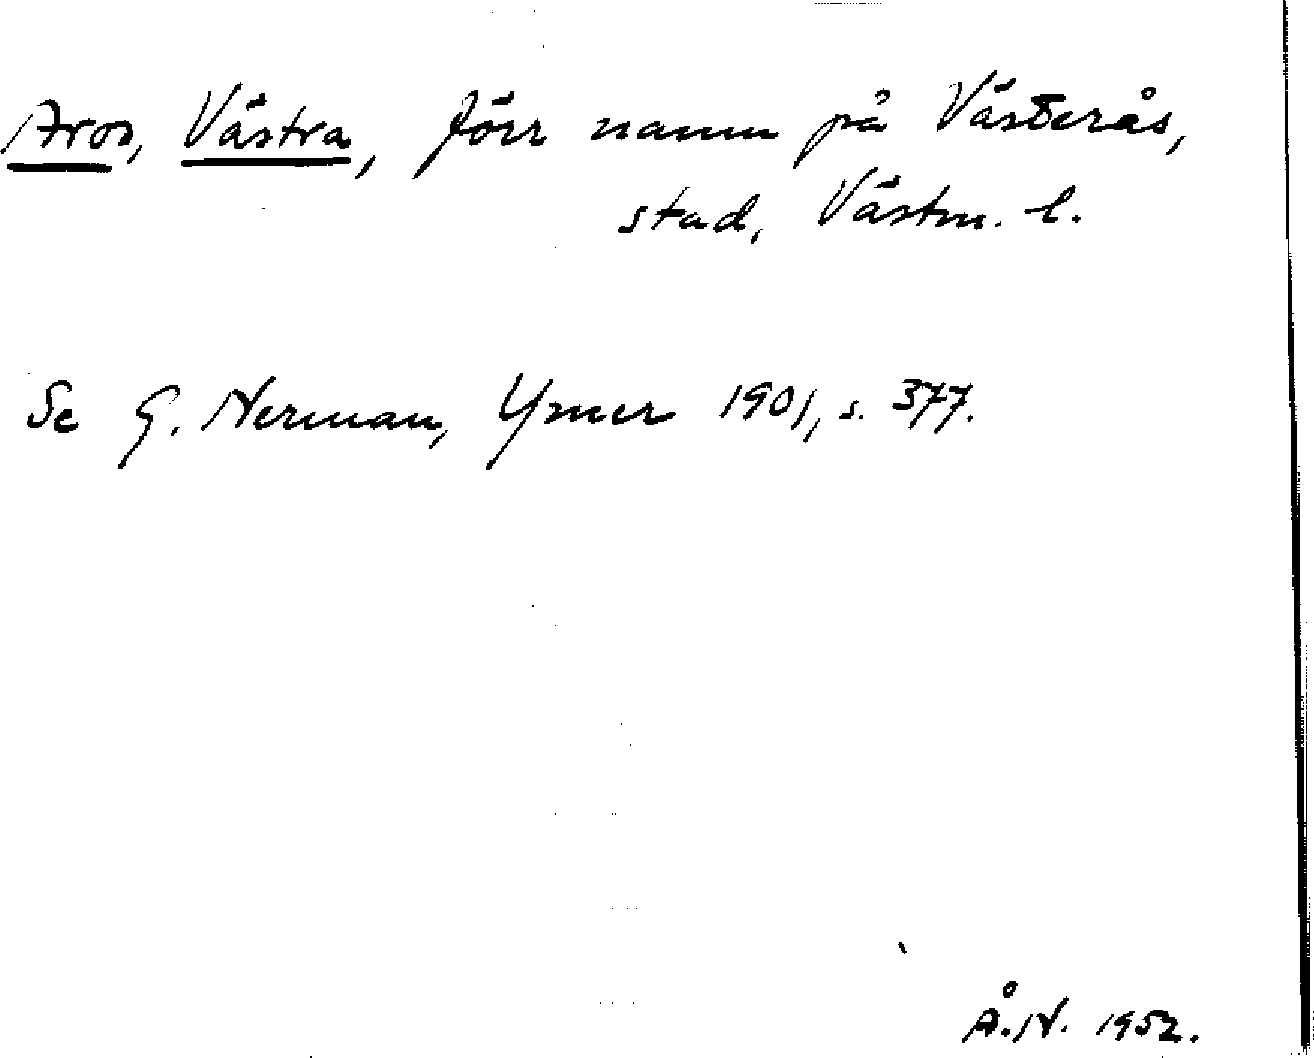 Aros, Västra, förr namn på Västerås,
stad, Västm. l.
Se G. Nerman, Ymer 1901, s. 377.
Å.N. 1952.